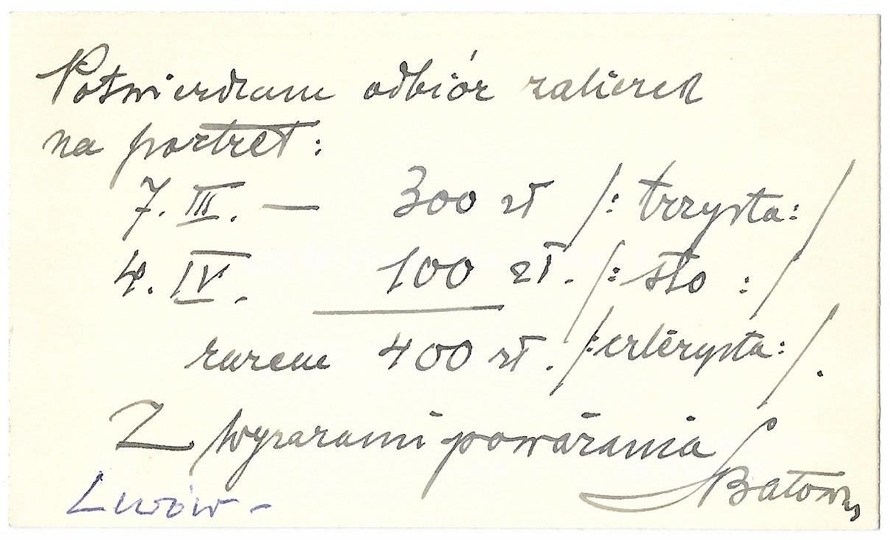 Potwierdzam odbiór zaliczek
na portret:
7. III. — 300 zł /: trzysta: /
4. IV. 100 zł. /: sto : /
razem 400 zł. /: czterysta: /.
Z wyrazami poważania
SBatows
Lwów -